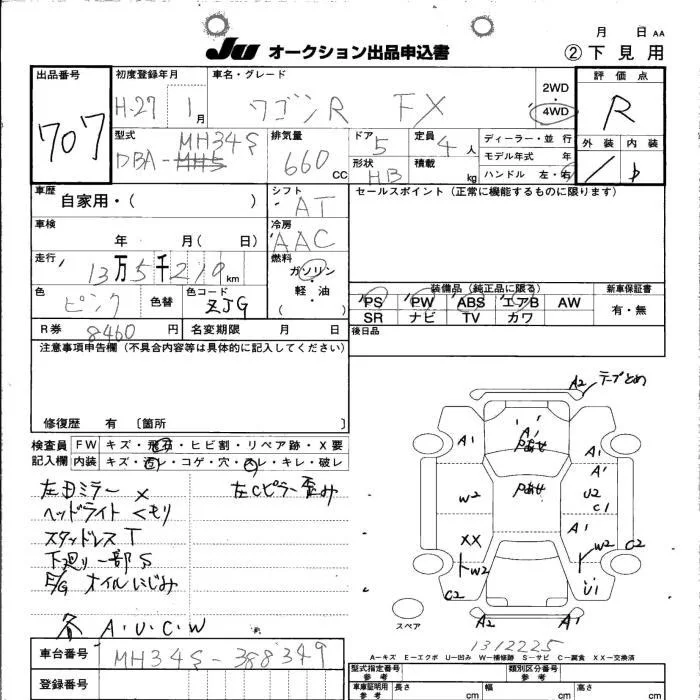 月 日 AA
JU オークション出品申込書 ②下見用
出品番号 707
初度登録年月 H.27 1月
車名・グレード ワゴンR FX
2WD
4WD
評価点 R
外装 内装
型式 DBA- MH34S
排気量 660 CC
ドア 5
形状 HB
定員 4人
積載 kg
ディーラー・並行
モデル年式 年
ハンドル 左・右
車歴 自家用・( )
シフト AT
セールスポイント (正常に機能するものに限ります)
車検 年 月( 日)
冷房 AAC
走行 13万5千219km
燃料 ガソリン・軽・油 ( )
色 ピンク 色替
色コード ZJG
装備品 (純正品に限る)
新車保証書
PS PW ABS エアB AW
SR ナビ TV カワ
有・無
R券 8460円
名変期限 月 日
後日品
注意事項申告欄 (不具合内容等は具体的に記入してください)
修復歴 有 [箇所 ]
検査員記入欄
FW キズ・飛石・ヒビ割・リペア跡・X要
内装 キズ・汚レ・コゲ・穴・スレ・キレ・破レ
左Dミラー X
左Cピラー歪み
ヘッドライト くもり
スタッドレス T
下廻り一部S
E/G オイルにじみ
各 A・U・C・W
A2 テープとめ
A1 A1 A1
A1
W2 U2
C1
XX A1
W2 W2 C2
C2 U1
A2 A1
スペア
1312225
A－キズ E－エクボ U－凹み W－補修跡 S－サビ C－腐食 XX－交換済
車台番号 MH34S-388349
登録番号
型式指定番号 参考
類別区分番号 参考
車庫証明用 参考
長さ cm 幅 cm 高さ cm